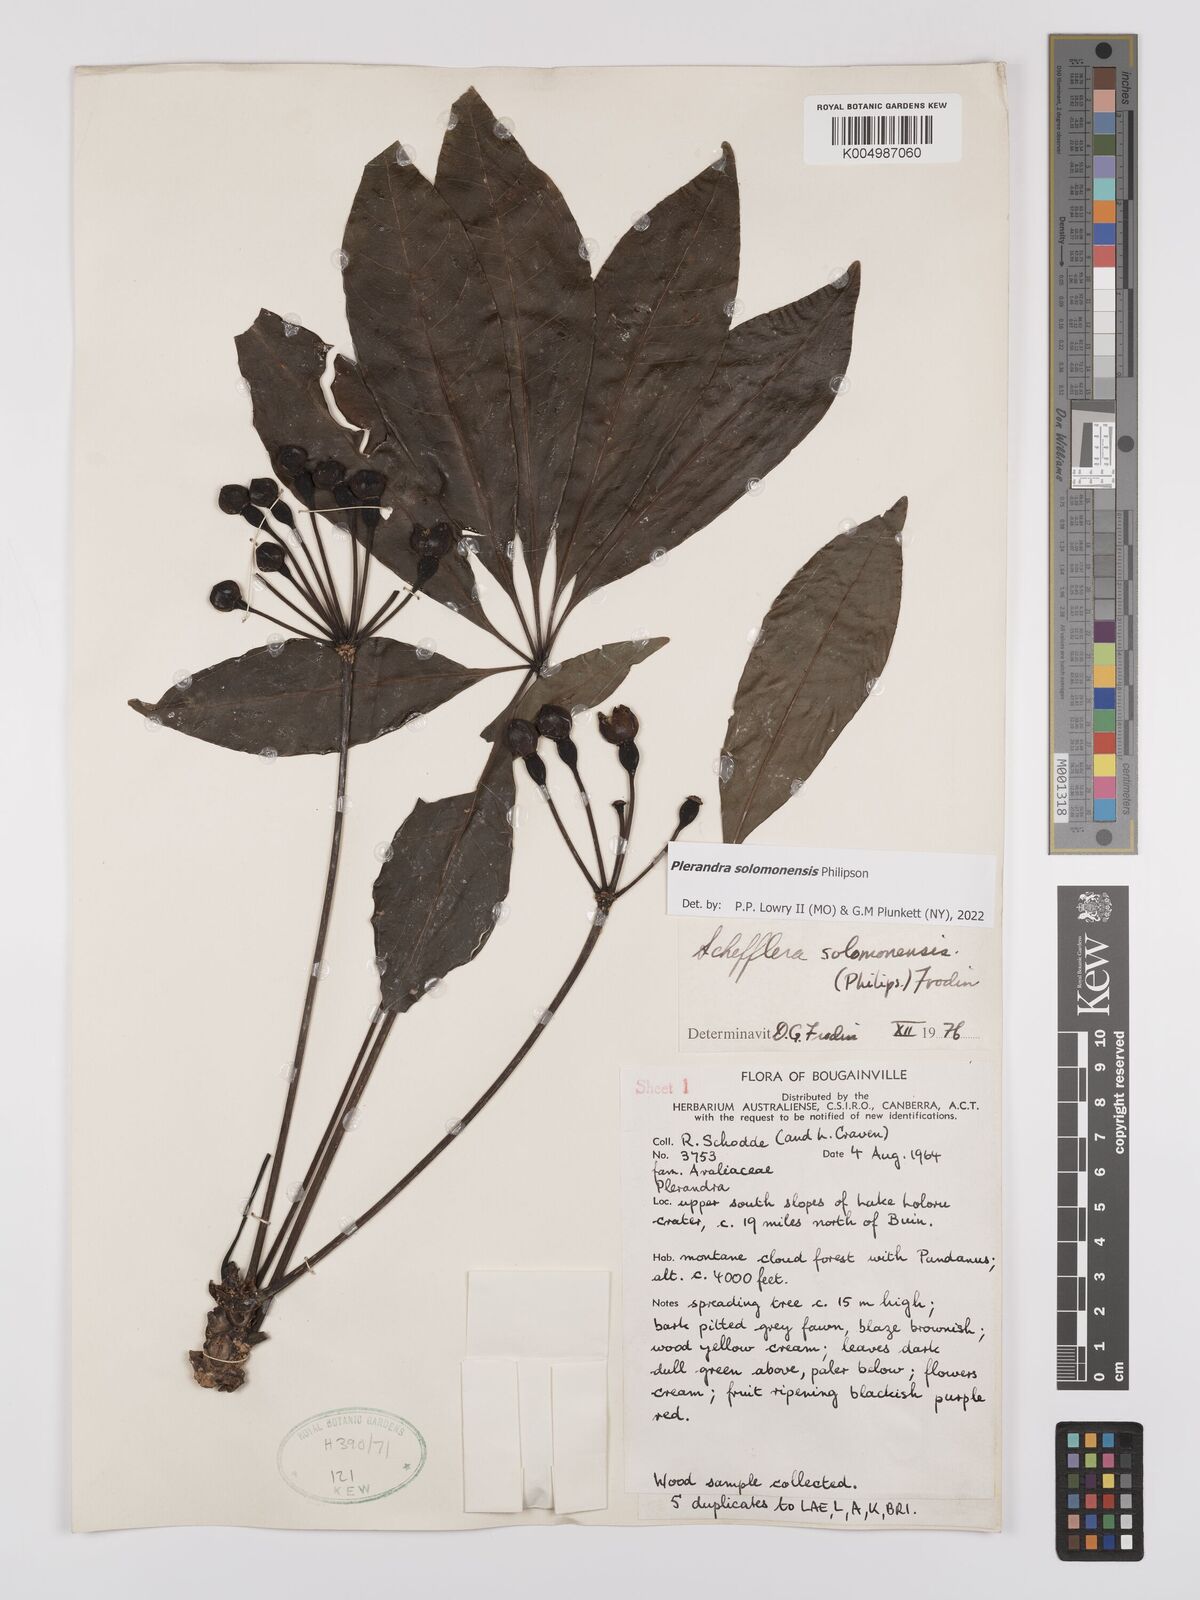 ROYAL BOTANIC GARDENS KEW
K004987060
Plerandra solomonensis Philipson
Det. by: P.P. Lowry II (MO) & G.M Plunkett (NY), 2022
Schefflera solomonensis.
(Philips.) Frodin
Determinavit D.G. Frodin XII 1976
Sheet 1
FLORA OF BOUGAINVILLE
Distributed by the
HERBARIUM AUSTRALIENSE, C.S.I.R.O., CANBERRA, A.C.T.
with the request to be notified of new identifications.
Coll. R. Schodde (and L. Craven)
No. 3753 Date 4 Aug. 1964
fam. Araliaceae
Plerandra
Loc. upper south slopes of Lake Loloru
crater, c. 19 miles north of Buin.
Hab. montane cloud forest with Pandanus;
alt. c. 4000 feet.
Notes spreading tree c. 15 m high;
bark pitted grey fawn, blaze brownish;
wood yellow cream; leaves dark
dull green above, paler below; flowers
cream; fruit ripening blackish purple
red.
Wood sample collected.
5 duplicates to LAE, L, A, K, BRI.
ROYAL BOTANIC GARDENS
H390/71
121
KEW
inches
Density
Don Williams
centimeters
M001318
Kew
Royal Botanic Gardens
0 1 2 3 4 5 6 7 8 9 10
cm
copyright reserved